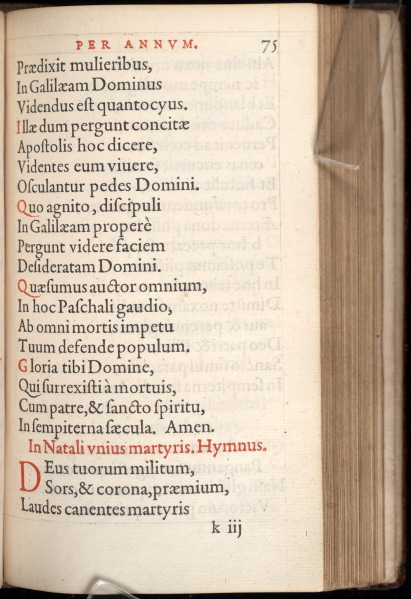 PER ANNVM. 75
Prædixit mulieribus,
In Galilæam Dominus
Videndus eſt quantocyus.
Illæ dum pergunt concitæ
Apoſtolis hoc dicere,
Videntes eum viuere,
Oſculantur pedes Domini.
Quo agnito, diſcipuli
In Galilæam properè
Pergunt videre faciem
Deſideratam Domini.
Quæſumus auctor omnium,
In hoc Paſchali gaudio,
Ab omni mortis impetu
Tuum defende populum.
Gloria tibi Domine,
Qui ſurrexiſti à mortuis,
Cum patre, & ſancto ſpiritu,
In ſempiterna ſæcula. Amen.
In Natali vnius martyris. Hymnus.
DEus tuorum militum,
Sors, & corona, præmium,
Laudes canentes martyris
k iij